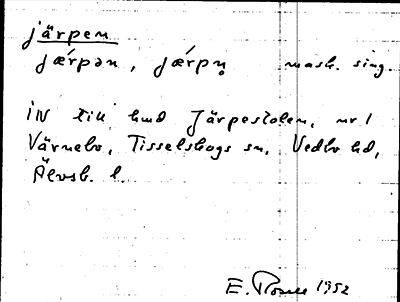 järpen
jǽrpən, jǽrpn̥ mask. sing.
IN till hmd Järpestolen, nr 1
Värnebo, Tisselskogs sn, Vedbo hd,
Älvsb. l.
E. Rosell 1952